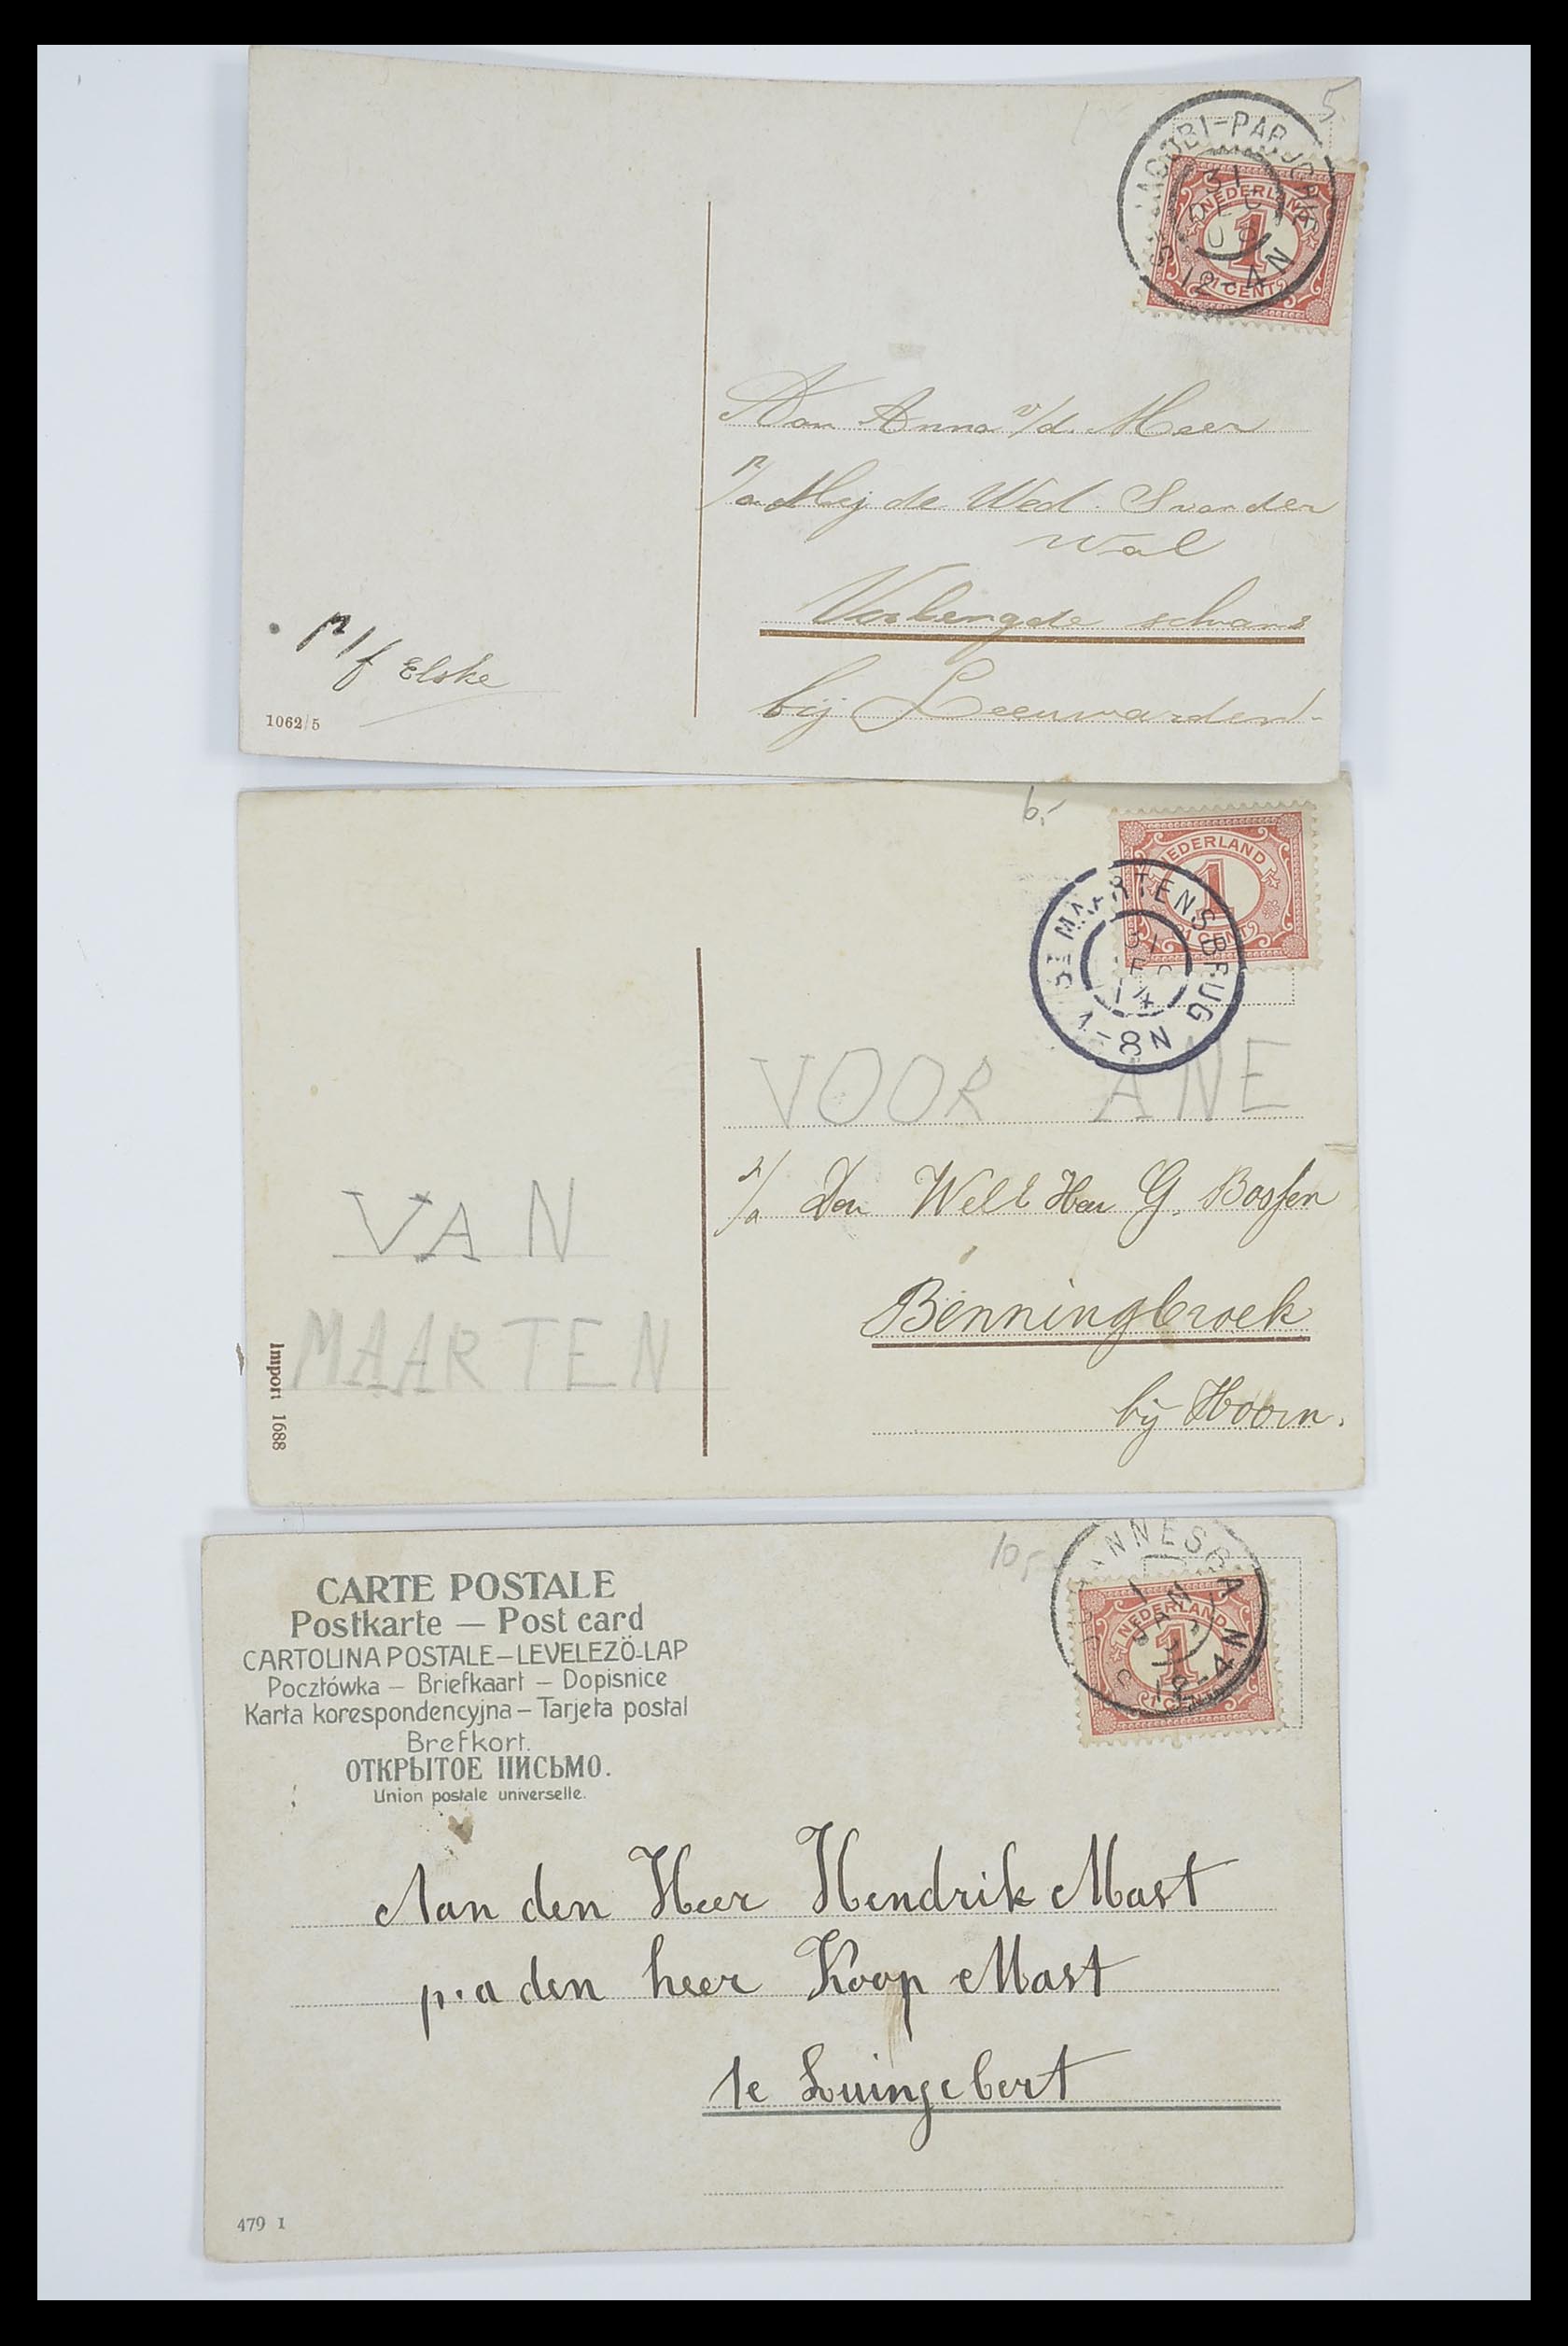 5.
JACOBI-PAROCHIE
31
DEC
12-4N
NEDERLAND
1
1 CENT
Aan Anna v/d. Meer
p/a Mej de Wed. S van der
Wal
Verlengde schans
bij Leeuwarden.
p/f Elske
1062/5
6,-
NEDERLAND
1
1 CENT
ST MAARTENSBRUG
31
14
-8N
VOOR ANE
p/a Den WelE Heer G. Bossen
Benningbroek
bij Hoorn.
VAN
MAARTEN
Import 1688
10,-
NEDERLAND
1
1 CENT
CARTE POSTALE
Postkarte — Post card
CARTOLINA POSTALE — LEVELEZÖ-LAP
Pocztówka — Briefkaart — Dopisnice
Karta korespondencyjna — Tarjeta postal
Brefkort.
ОТКРЫТОЕ ПИСЬМО.
Union postale universelle.
Aan den Heer Hendrik Mast
p.a den heer Koop Mast
te Luingebert
479 I